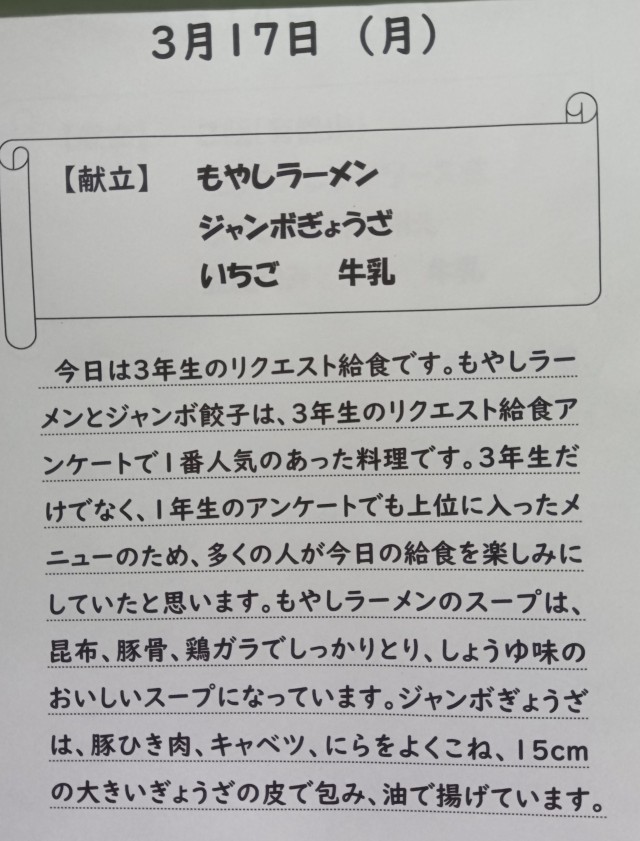 3月17日（月）
【献立】 もやしラーメン
ジャンボぎょうざ
いちご 牛乳
今日は3年生のリクエスト給食です。もやしラー
メンとジャンボ餃子は、3年生のリクエスト給食ア
ンケートで1番人気のあった料理です。3年生だ
けでなく、1年生のアンケートでも上位に入ったメ
ニューのため、多くの人が今日の給食を楽しみに
していたと思います。もやしラーメンのスープは、
昆布、豚骨、鶏ガラでしっかりとり、しょうゆ味の
おいしいスープになっています。ジャンボぎょうざ
は、豚ひき肉、キャベツ、にらをよくこね、15cm
の大きいぎょうざの皮で包み、油で揚げています。